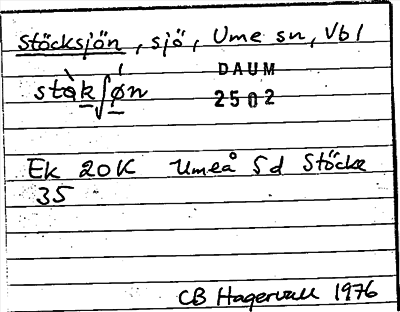 Stöcksjön, sjö, Ume sn, Vbl
DAUM
2502
Ek 20K Umeå Sd Stöcke
35
CB Hagervall 1976